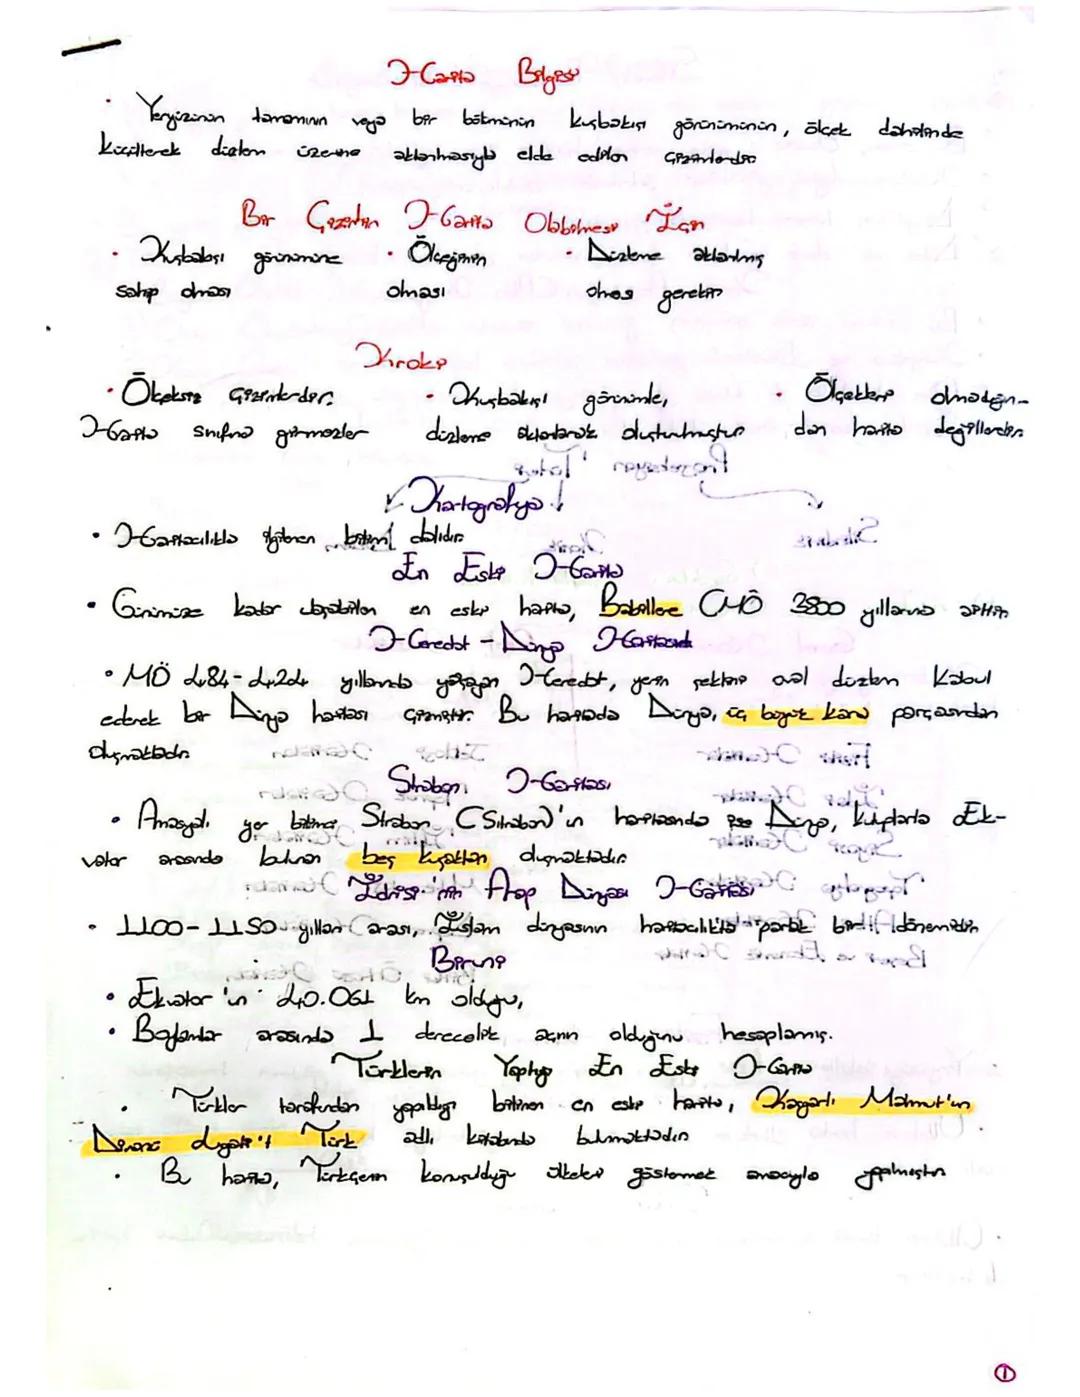 Harita Bilgisi
• Yeryüzünün tamamının veya bir bölümünün kuşbakışı görünümünün, ölçek dahilinde
küçülterek düzlem üzerine aktarılmasıyla elde edilen çizimlerdir.
Bir Çizimin Harita Olabilmesi İçin
• Kuşbakışı görünümüne • Ölçeğinin • Düzleme aktarılmış
sahip olması olması olması gerekir
Kroki
• Ölçeksiz çizimlerdir. • Kuşbakışı görünümle, • Ölçekleri olmadığın-
Harita sınıfına girmezler düzleme aktarılarak oluşturulmuştur dan harita değillerdir.
Kartografya
• Haritacılıkla ilgilenen bilim dalıdır.
En Eski Harita
• Günümüze kadar ulaşabilen en eski harita, Babillere (MÖ 3800 yıllarına aittir.
Heredot - Dünya Haritası
• MÖ 484-424 yıllarında yaşayan Heredot, yerin şeklini oval düzlem kabul
ederek bir Dünya haritası çizmiştir. Bu haritada Dünya, üç büyük kara parçasından
oluşmaktadır.
Strabon Haritası
• Amasyalı yer bilimci Strabon (Sitrabon)'ın haritasında Dünya, kutuplarla Ek-
vator arasında bulunan beş kuşaktan oluşmaktadır.
İdrisi'nin Arap Dünyası Haritası
• 1100-1150 yılları arası, İslam dünyasının haritacılıkta parlak bir dönemidir.
Biruni
• Ekvator'un 40.061 km olduğu,
• Boylamlar arasında 1 derecelik açının olduğunu hesaplamış.
Türklerin Yaptığı En Eski Harita
• Türkler tarafından yapıldığı bilinen en eski harita, Kaşgarlı Mahmut'un
Divanü Lügati't Türk adlı kitabında bulunmaktadır.
• Bu harita, Türkçenin konuşulduğu ülkeleri göstermek amacıyla yapılmıştır.
1